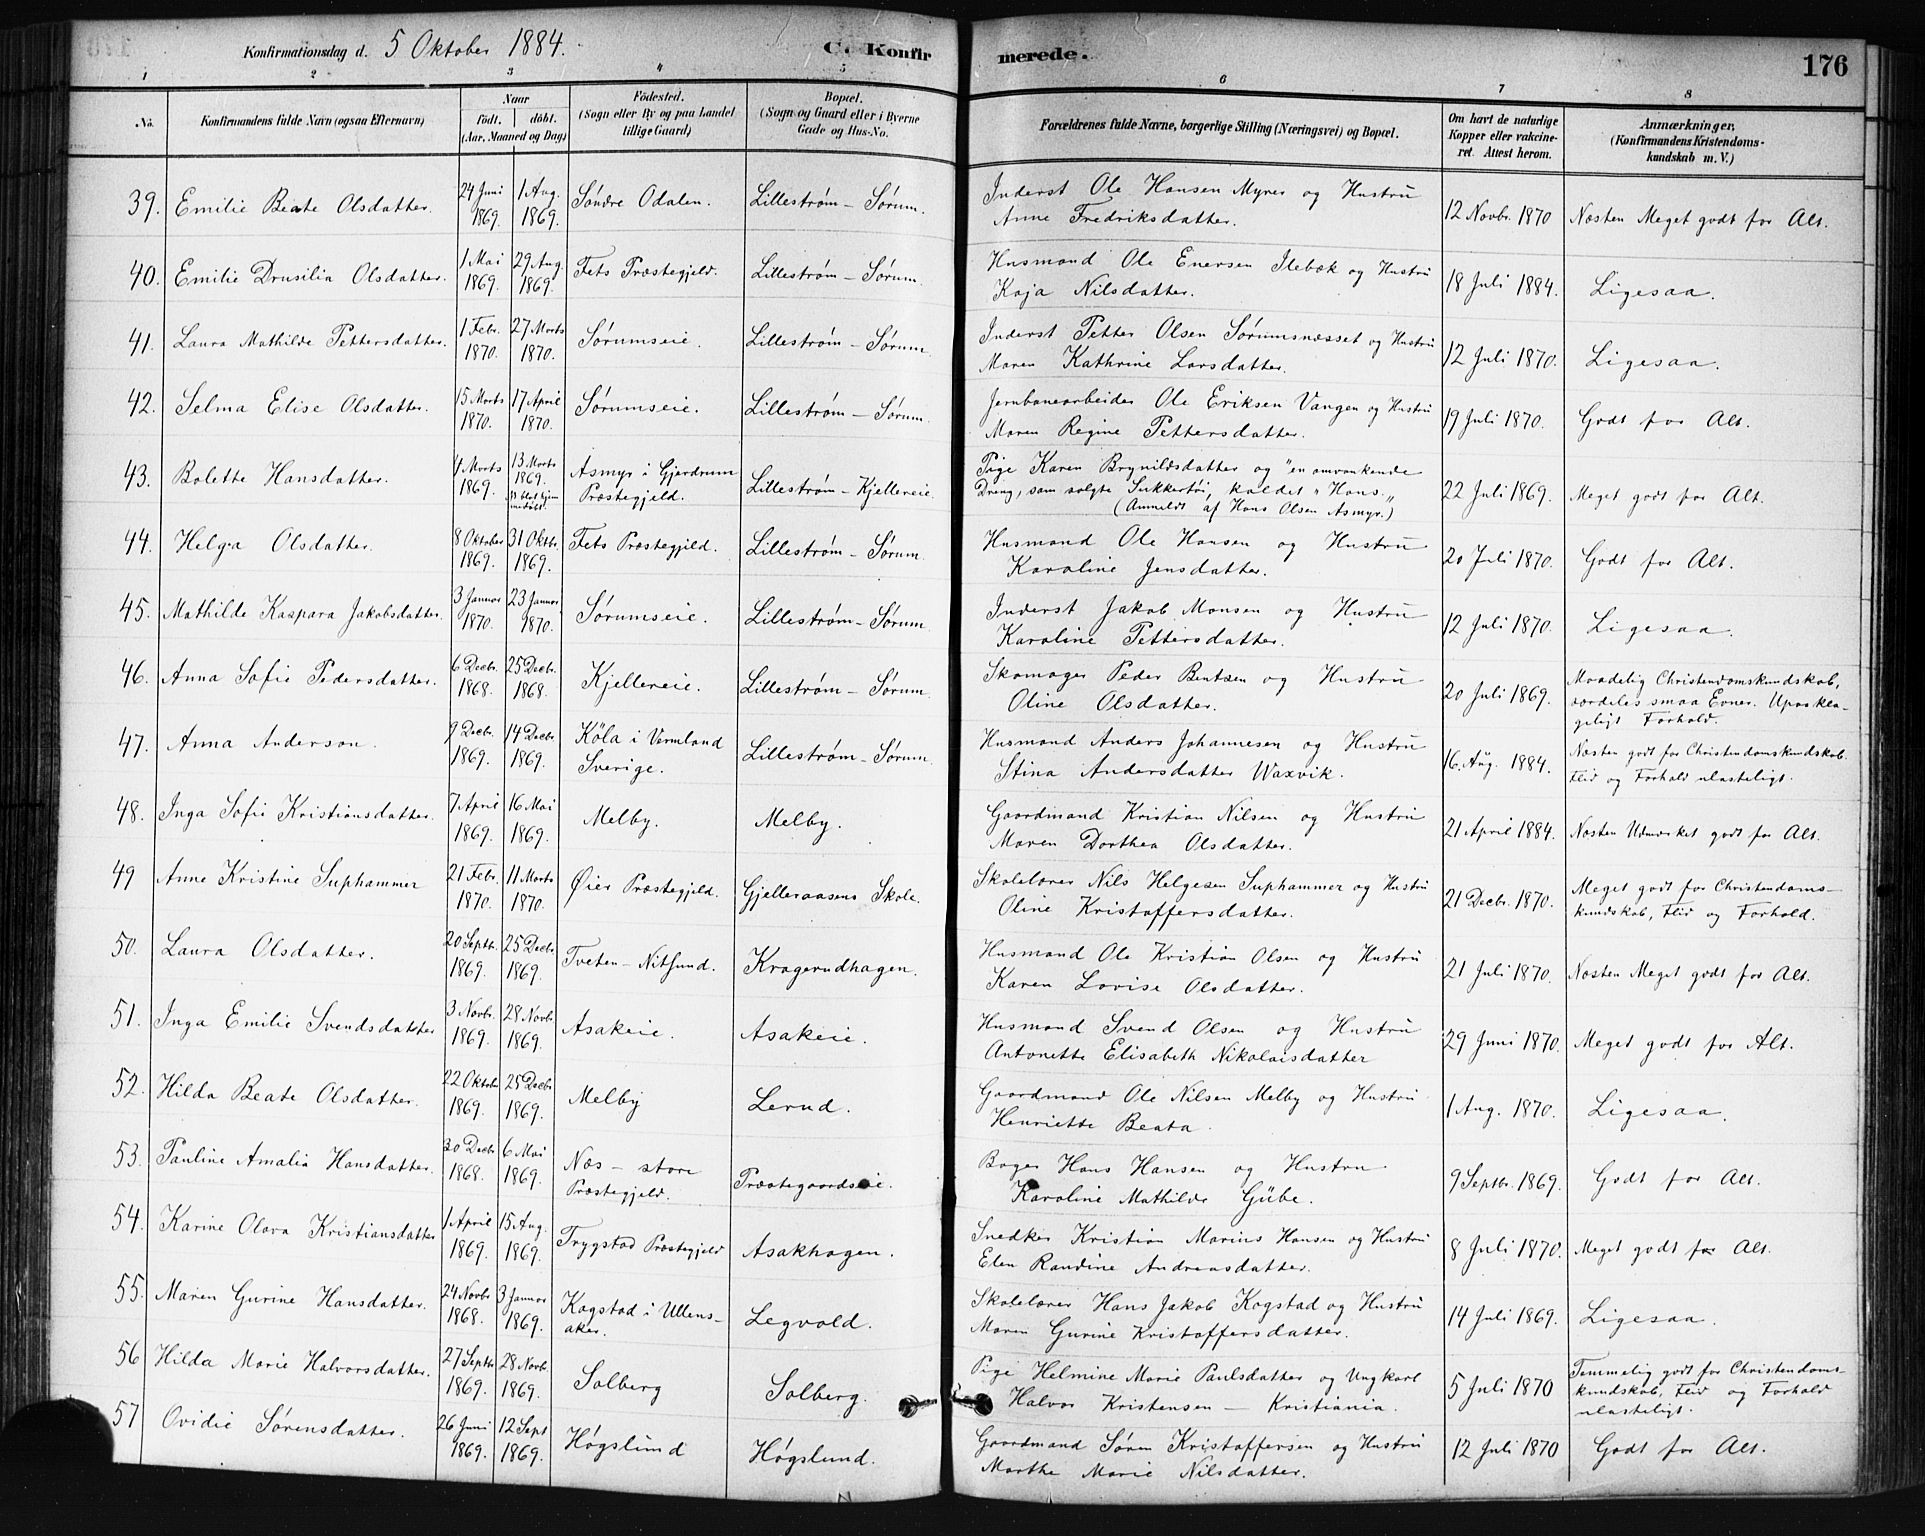 Konfirmationsdag d. 5 Oktober 1884. C. Konfir merede. 176
1 2 3 4 5 6 7 8
No. Konfirmandens fulde Navn (ogsaa Efternavn) Naar født. døbt. (Aar, Maaned og Dag) Fødested. (Sogn eller By og paa Landet tillige Gaard) Bopæl. (Sogn og Gaard eller i Byerne Gade og Hus-No. Forældrenes fulde Navne, borgerlige Stilling (Næringsvei) og Bopæl. Om havt de naturlige Kopper eller vakcineret. Attest herom. Anmærkninger, (Konfirmandens Kristendomskundskab m. V.)
39. Emilie Beate Olsdatter. 24 Juni 1869. 1 Aug. 1869. Søndre Odalen. Lillestrøm – Sørum. Inderst Ole Hansen Myrer og Hustru Anne Fredriksdatter. 12 Novbr. 1870 Næsten Meget godt for Alt.
40. Emilie Drusilia Olsdatter. 1 Mai 1869. 29 Aug. 1869. Fets Præstegjeld. Lillestrøm – Sørum. Husmand Ole Enersen Ilebæk og Hustru Kaja Nilsdatter. 18 Juli 1884. Ligesaa.
41. Laura Mathilde Pettersdatter. 1 Febr. 1870. 27 Marts 1870. Sørumseie. Lillestrøm – Sørum. Inderst Petter Olsen Sørumsnæsset og Hustru Maren Kathrine Larsdatter. 12 Juli 1870. Ligesaa.
42. Selma Elise Olsdatter. 15 Marts 1870. 17 April 1870. Sørumseie. Lillestrøm – Sørum. Jernbanearbeider Ole Eriksen Vangen og Hustru Maren Regine Pettersdatter. 19 Juli 1870. Godt for Alt.
43. Bolette Hansdatter. 4 Marts 1869. 13 Marts 1869. blot hjemmedøbt. Asmyr i Gjerdrum Præstegjeld. Lillestrøm – Kjellereie. Pige Karen Brynildsdatter og "en omvankende Dreng, som solgte Sukkertøi, kaldet "Hans." (Anmeldt af Hans Olsen Asmyr.) 22 Juli 1869. Meget godt for Alt.
44. Helga Olsdatter. 8 Oktober 1869. 31 Oktbr. 1869. Fets Præstegjeld. Lillestrøm – Sørum. Husmand Ole Hansen og Hustru Karoline Jensdatter. 20 Juli 1870. Godt for Alt.
45. Mathilde Kaspara Jakobsdatter. 3 Januar 1870. 23 Januar 1870. Sørumseie. Lillestrøm – Sørum. Inderst Jakob Monsen og Hustru Karoline Pettersdatter. 12 Juli 1870. Ligesaa.
46. Anna Sofie Pedersdatter. 6 Decbr. 1868. 25 Decbr. 1868. Kjellereie. Lillestrøm – Sørum. Skomager Peder Bentsen og Hustru Oline Olsdatter. 20 Juli 1869. Maadelig Christendomskundskab, særdeles smaa Evner. Upaaklageligt Forhold.
47. Anna Anderson. 9 Decbr. 1869. 14 Decbr. 1869. Köla i Vermland Sverige. Lillestrøm – Sørum. Husmand Anders Johannesen og Hustru Stina Andersdatter Waxvik. 16. Aug. 1884. Næsten godt for Christendomskundskab. Flid og Forhold ulasteligt.
48. Inga Sofie Kristiansdatter. 7 April 1869. 16 Mai 1869. Melby. Melby. Gaardmand Kristian Nilsen og Hustru Maren Dorthea Olsdatter. 21 April 1884. Næsten Udmærket godt for Alt.
49 Anne Kristine Suphammer 21 Febr. 1870. 11 Marts 1870. Øier Præstegjeld. Gjelleraasens Skole. Skolelærer Nils Helgesen Suphammer og Hustru Oline Kristoffersdatter. 21 Decbr. 1870. Meget godt for Christendomskundskab, Flid og Forhold.
50. Laura Olsdatter. 20 Septbr. 1869. 25 Decbr. 1869. Tveten – Nitsund. Kragerudhagen. Husmand Ole Kristian Olsen og Hustru Karen Lovise Olsdatter. 21 Juli 1870. Næsten Meget godt for Alt.
51. Inga Emilie Svendsdatter 3 Novbr. 1869. 28 Novbr. 1869. Asakeie. Asakeie. Husmand Svend Olsen og Hustru Antonette Elisabeth Nikolaisdatter 29 Juni 1870. Meget godt for Alt.
52. Hilda Beate Olsdatter. 22 Oktober 1869. 25 Decbr. 1869. Melby Lerud. Gaardmand Ole Nilsen Melby og Hustru Henriette Beata. 1 Aug. 1870. Ligesaa.
53. Pauline Amalia Hansdatter. 30 Decbr. 1868. 6 Mai 1869. Næs – store Præstegjeld. Præstegaardseie. Bager Hans Hansen og Hustru Karoline Mathilde Gübe. 9 Septbr. 1869. Godt for Alt.
54. Karine Olava Kristiansdatter 1 April 1869. 15 Aug. 1869. Trygstad Præstegjeld Asakhagen. Snedker Kristian Marius Hansen og Hustru Elen Randine Andreasdatter. 8 Juli 1870. Meget godt for Alt.
55. Maren Gurine Hansdatter. 24 Novbr. 1868. 3 Januar 1869. Kogstad i Ullensaker. Legvold. Skolelærer Hans Jakob Kogstad og Hustru Maren Gurine Kristoffersdatter. 14 Juli 1869. Ligesaa.
56 Hilda Marie Halvorsdatter. 27 Septbr 1869. 28 Novb. 1869. Solberg Solberg. Pige Helmine Marie Paulsdatter og Ungkarl Halvor Kristensen – Kristiania. 5 Juli 1870 Temmelig godt for Christendomskundskab, Flid og Forhold ulasteligt.
57 Ovidie Sørensdatter. 26 Juni 1869. 12 Sept 1869. Høgslund Høgslund. Gaardmand Søren Kristoffersen og Hustru Marthe Marie Nilsdatter. 12 Juli 1870 Godt for Alt.